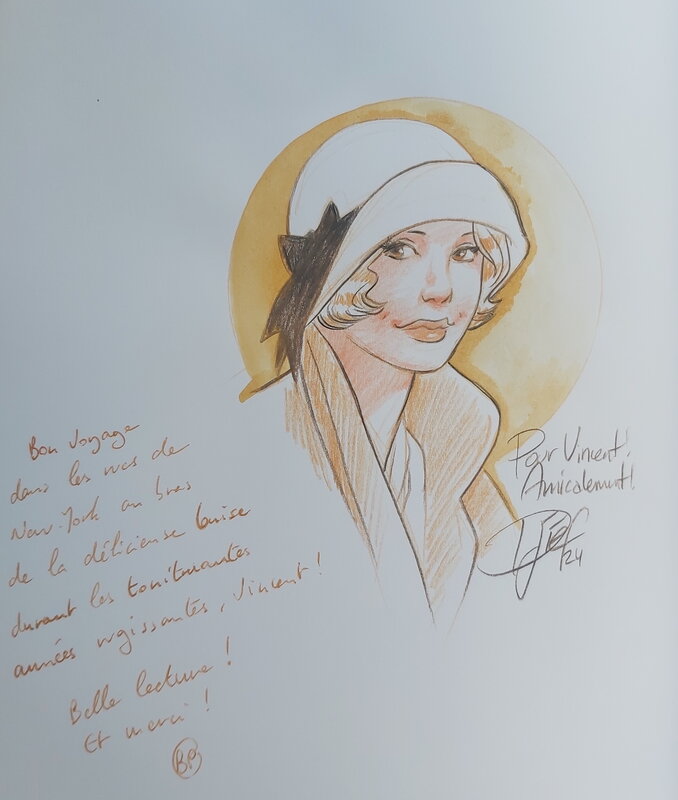 Bon voyage
dans les rues de
New-York au bras
de la délicieuse Louise
durant les tonitruantes
années rugissantes, Vincent !
Belle lecture !
Et merci !
BP
Pour Vincent !
Amicalement !
24